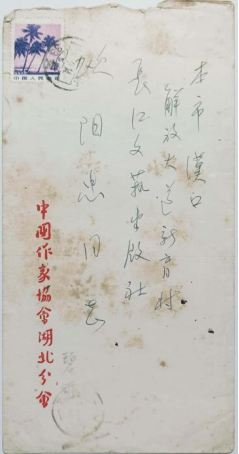 本市漢口
解放大道新育村
長江文藝出版社
欧阳忠同志
中國作家協會湖北分會
中国人民邮政